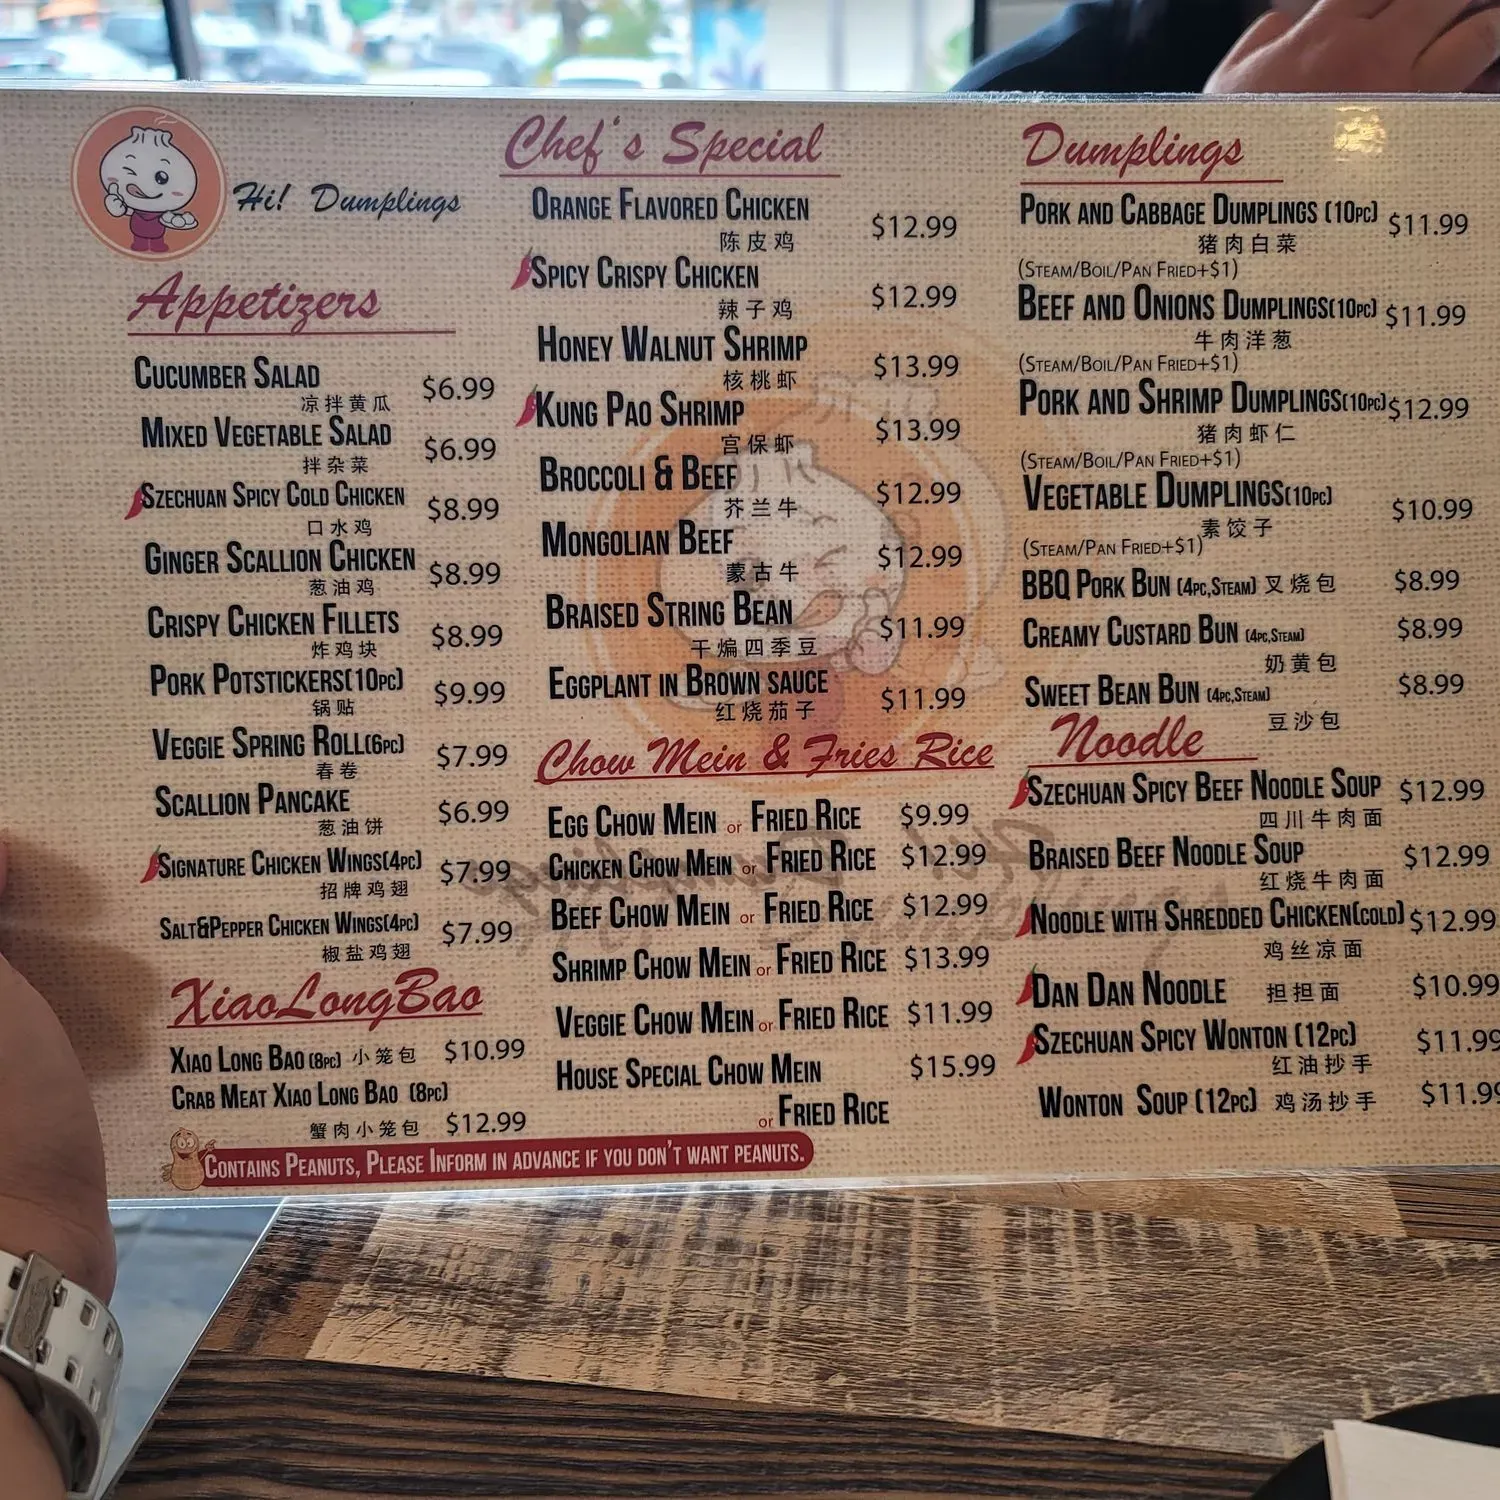 Hi! Dumplings
Appetizers
Cucumber Salad $6.99
凉拌黄瓜
Mixed Vegetable Salad $6.99
拌杂菜
Szechuan Spicy Cold Chicken $8.99
口水鸡
Ginger Scallion Chicken $8.99
葱油鸡
Crispy Chicken Fillets $8.99
炸鸡块
Pork Potstickers(10pc) $9.99
锅贴
Veggie Spring Roll(6pc) $7.99
春卷
Scallion Pancake $6.99
葱油饼
Signature Chicken Wings(4pc) $7.99
招牌鸡翅
Salt&Pepper Chicken Wings(4pc) $7.99
椒盐鸡翅
XiaoLongBao
Xiao Long Bao (8pc) 小笼包 $10.99
Crab Meat Xiao Long Bao (8pc)
蟹肉小笼包 $12.99
Contains Peanuts, Please Inform in advance if you don't want peanuts.
Chef's Special
Orange Flavored Chicken $12.99
陈皮鸡
Spicy Crispy Chicken $12.99
辣子鸡
Honey Walnut Shrimp $13.99
核桃虾
Kung Pao Shrimp $13.99
宫保虾
Broccoli & Beef $12.99
芥兰牛
Mongolian Beef $12.99
蒙古牛
Braised String Bean $11.99
干煸四季豆
Eggplant in Brown sauce $11.99
红烧茄子
Chow Mein & Fries Rice
Egg Chow Mein or Fried Rice $9.99
Chicken Chow Mein or Fried Rice $12.99
Beef Chow Mein or Fried Rice $12.99
Shrimp Chow Mein or Fried Rice $13.99
Veggie Chow Mein or Fried Rice $11.99
House Special Chow Mein $15.99
or Fried Rice
Dumplings
Pork and Cabbage Dumplings (10pc) $11.99
猪肉白菜
(Steam/Boil/Pan Fried+$1)
Beef and Onions Dumplings(10pc) $11.99
牛肉洋葱
(Steam/Boil/Pan Fried+$1)
Pork and Shrimp Dumplings(10pc) $12.99
猪肉虾仁
(Steam/Boil/Pan Fried+$1)
Vegetable Dumplings(10pc) $10.99
素饺子
(Steam/Pan Fried+$1)
BBQ Pork Bun (4pc,Steam) 叉烧包 $8.99
Creamy Custard Bun (4pc,Steam) $8.99
奶黄包
Sweet Bean Bun (4pc,Steam) $8.99
豆沙包
Noodle
Szechuan Spicy Beef Noodle Soup $12.99
四川牛肉面
Braised Beef Noodle Soup $12.99
红烧牛肉面
Noodle with Shredded Chicken(cold) $12.99
鸡丝凉面
Dan Dan Noodle 担担面 $10.99
Szechuan Spicy Wonton (12pc) $11.99
红油抄手
Wonton Soup (12pc) 鸡汤抄手 $11.99